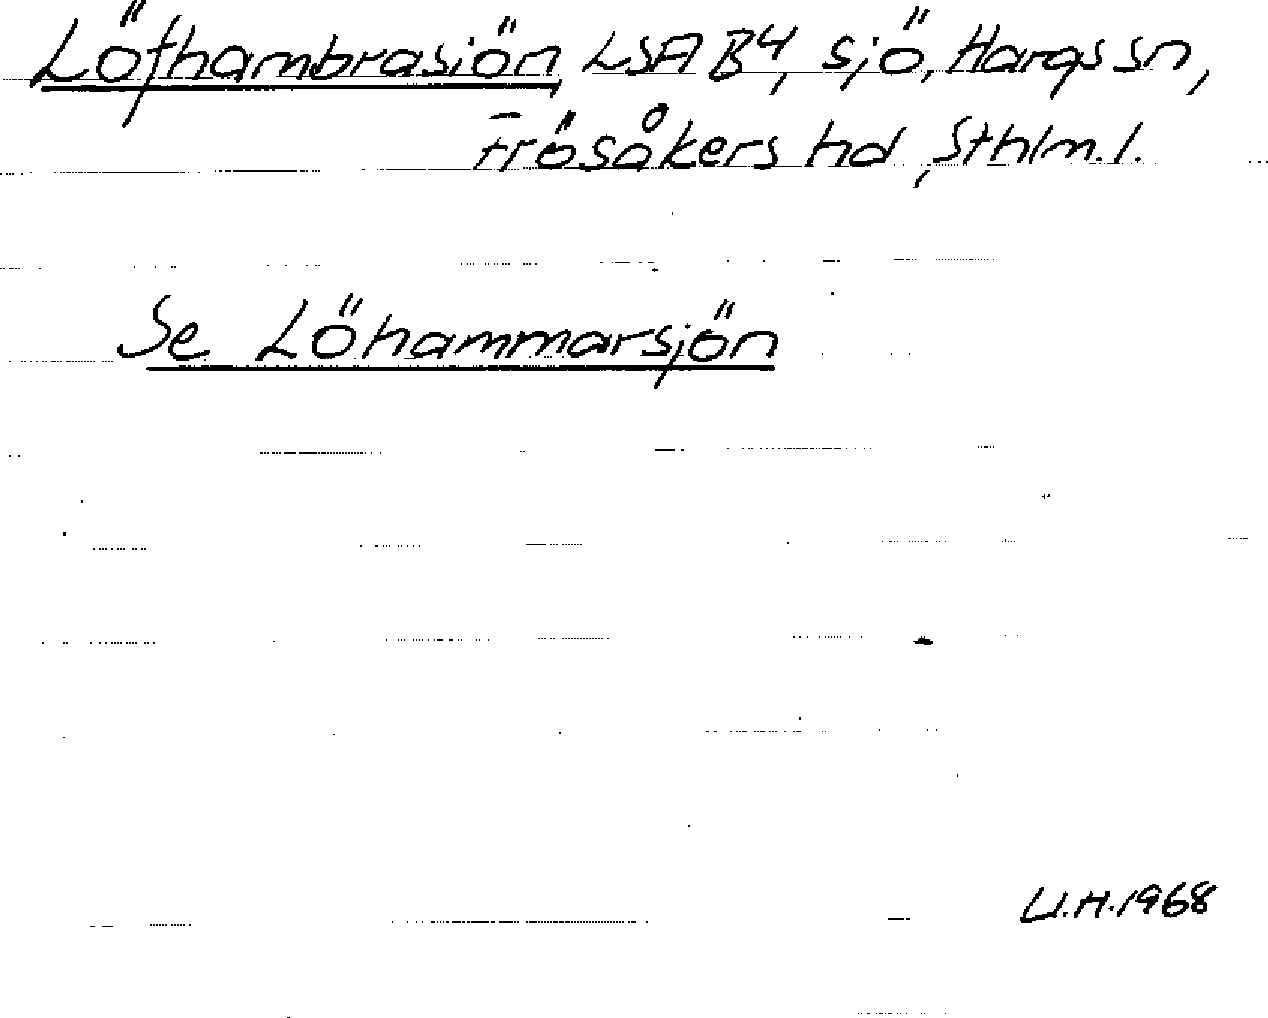 Löfhambrasiön, LSA B4, sjö, Hargs sn,
Frösåkers hd, Sthlm.l.
Se Löhammarsjön
U.H.1968